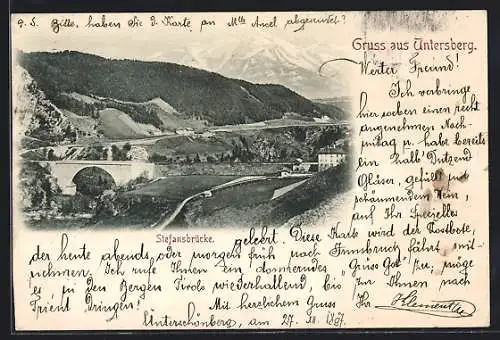 9. S. Bitte, haben Sie d. Karte an Mlle Anel abgesendet?
Gruss aus Untersberg.
Werter Freund!
Ich verbringe
hier soeben einen recht
angenehmen Nach-
mittag u. habe bereits
ein halb Dutzend
Gläser, gefüllt mit
schäumendem Wein,
auf Ihr Spezielles
Stefansbrücke.
geleert. Diese Karte wird der Postbote,
der heute abends oder morgen früh nach Innsbruck fährt, mit-
nehmen. Ich rufe Ihnen ein donnerndes "Grüss Gott" zu, möge
es in den Bergen Tirols wiederhallend, bis zu Ihnen nach
Trient dringen! Mit herzlichem Gruss Ihr
Unterschönberg, am 27. 1897.